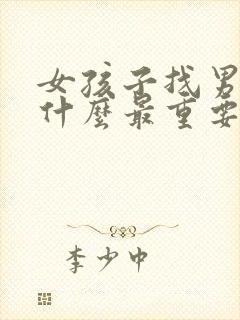 女孩子找男
什麼最重要
李少中